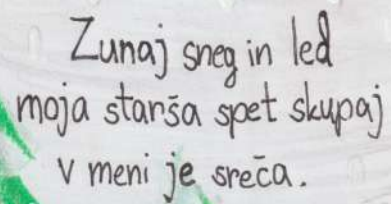 Zunaj sneg in led
moja starša spet skupaj
v meni je sreča.